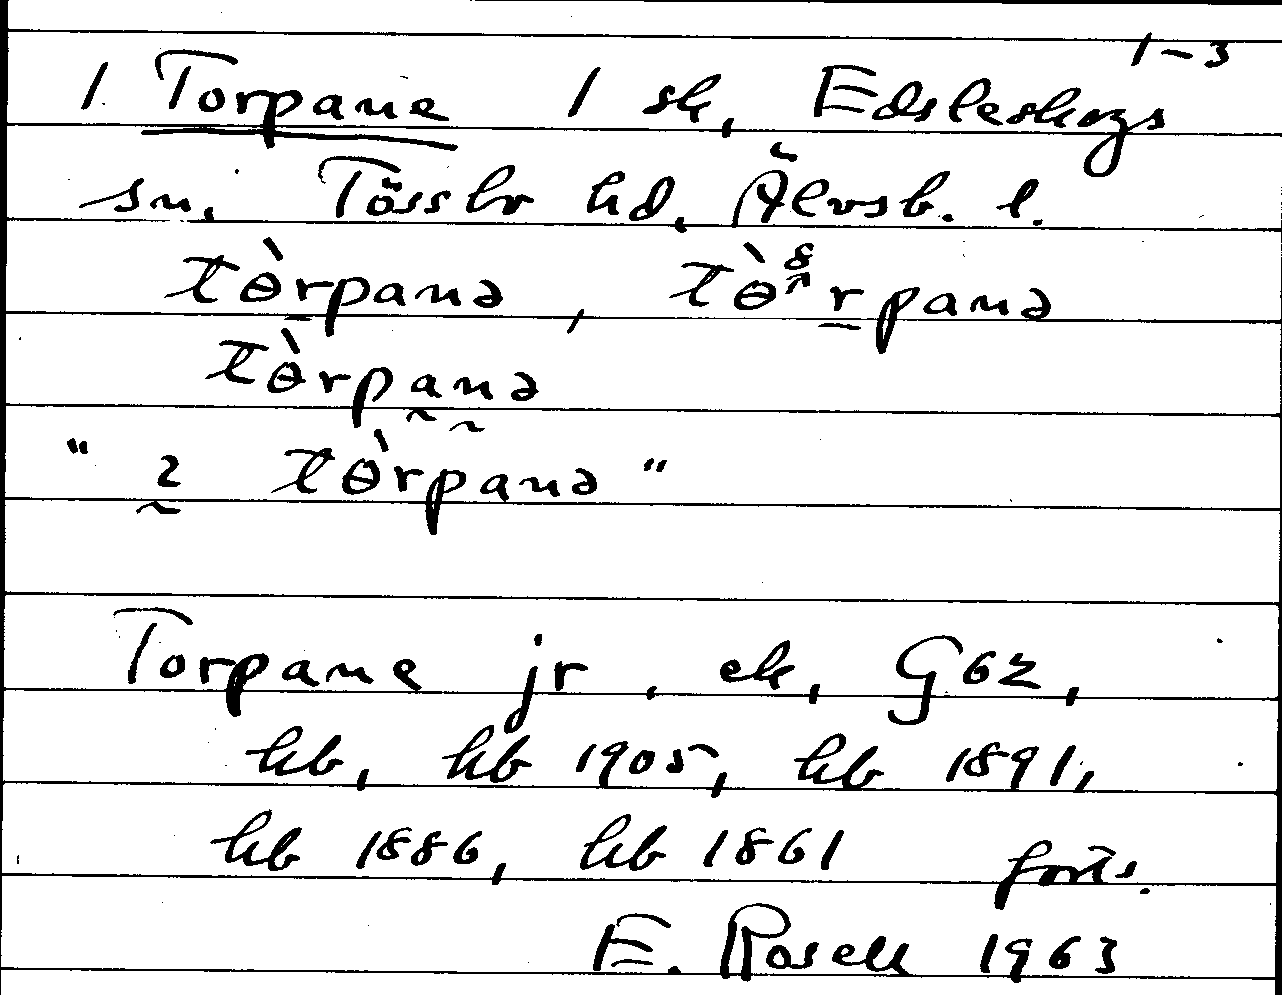 1-3
1 Torpane 1 sk, Edsleskogs
sn. Tössbo hd, Älvsb. l.
tɵ̀rpanə, tɵ̀ rpanə
tɵ̀rpanə
" 2 tɵ̀rpanə "
Torpane jr, ek, G62,
hb, hb 1905, hb 1891,
hb 1886, hb 1861 forts.
E. Rosell 1963